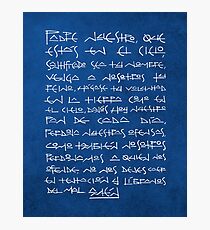 PADRE NUESTRO, QUE
ESTAS EN EL CIELO,
SEA TU NOMBRE,
VENGA A NOSOTROS TU
REINO, HAGASE TU VOLUNTAD
EN LA TIERRA COMO EN
EL CIELO. DANOS HOY NUESTRO
PAN DE CADA DIA,
PERDONA NUESTRAS OFENSAS,
COMO TAMBIEN NOSOTROS
PERDONAMOS A QUIEN NOS
OFENDE NO NOS DEJES CAER
EN TENTACION Y LIBRANOS
DEL MAL. AMEN